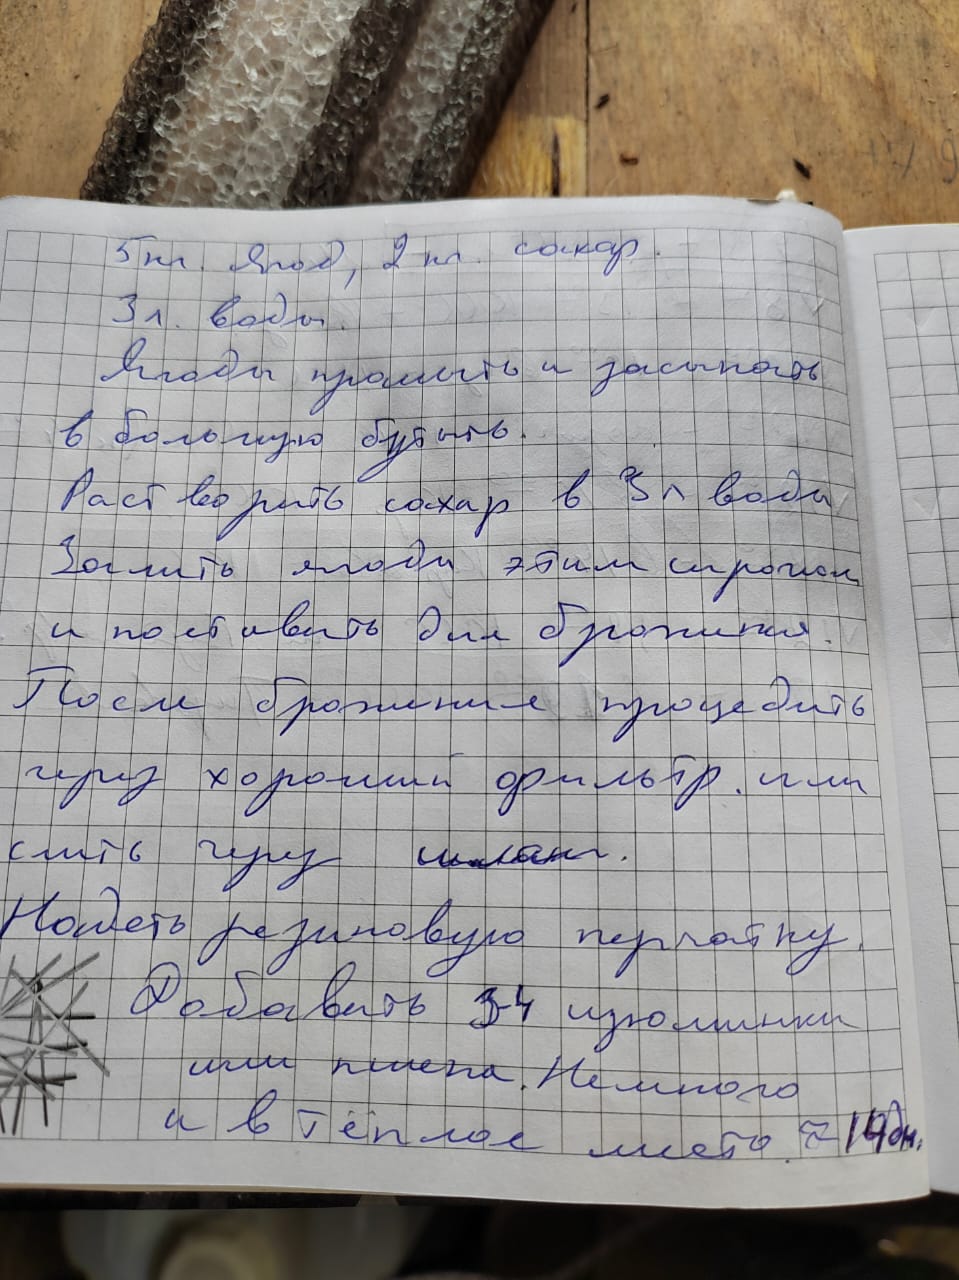 5 кг. Ягод, 2 кг. сахар.
3 л. воды.
Ягоды промыть и засыпать
в большую бутыль.
Растворить сахар в 3 л воды
Залить ягоды этим сиропом
и поставить для брожения.
После брожения процедить
через хороший фильтр. или
слить через шланг.
Надеть резиновую перчатку.
Добавить 3-4 изюминки
или пшена. Немного
и в тёплое место. ≈ 14 дн.